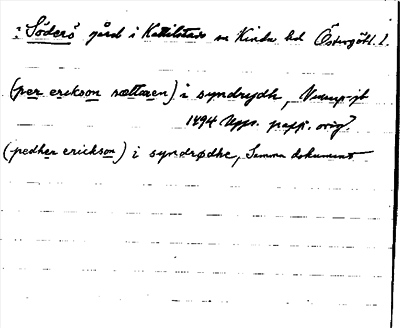 : Söderö gård i Kättilstads sn Kinda hd Östergötl. l.
(per erikson sættaren) i syndrydh,
1494 Upps. papp. orig.
(pedher erickson) i syndrødhe, Samma dokument